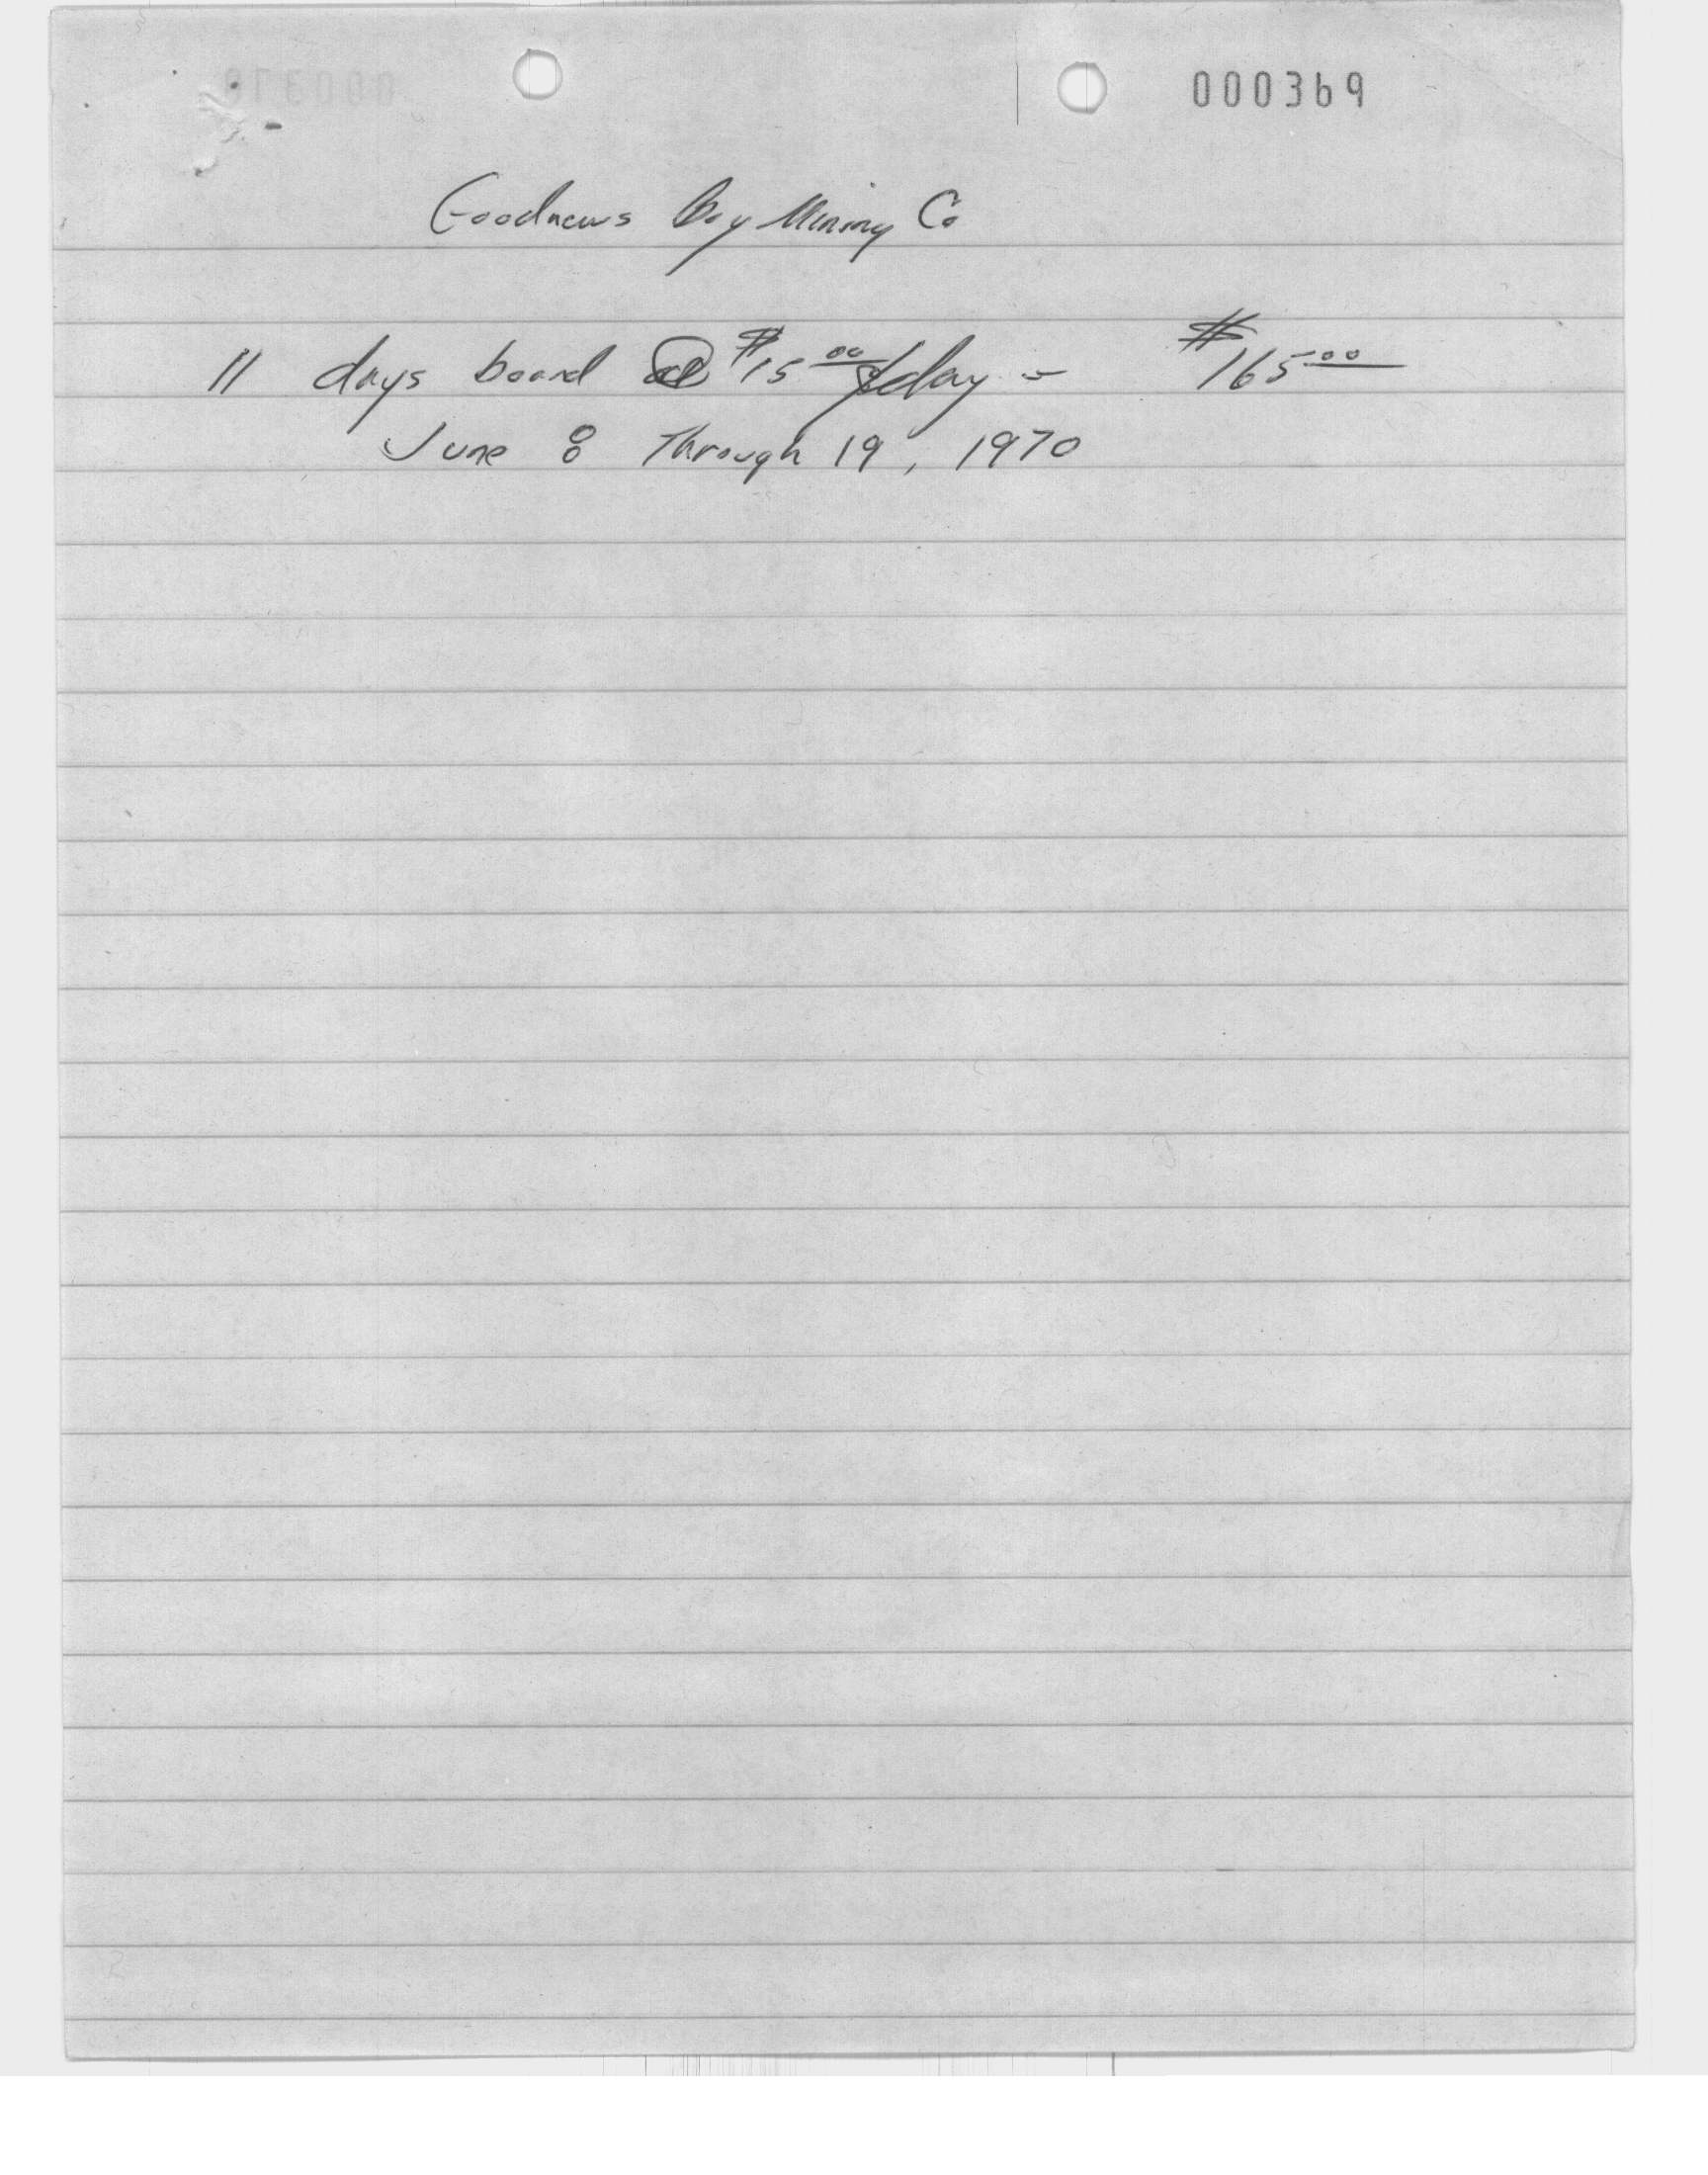 000369
Goodnews Bay Mining Co
11 days board @ $15.00/day = $165.00
June 8 Through 19, 1970